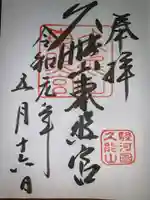 奉拝
久能山東照宮
令和元年
五月十六日
駿河國
久能山